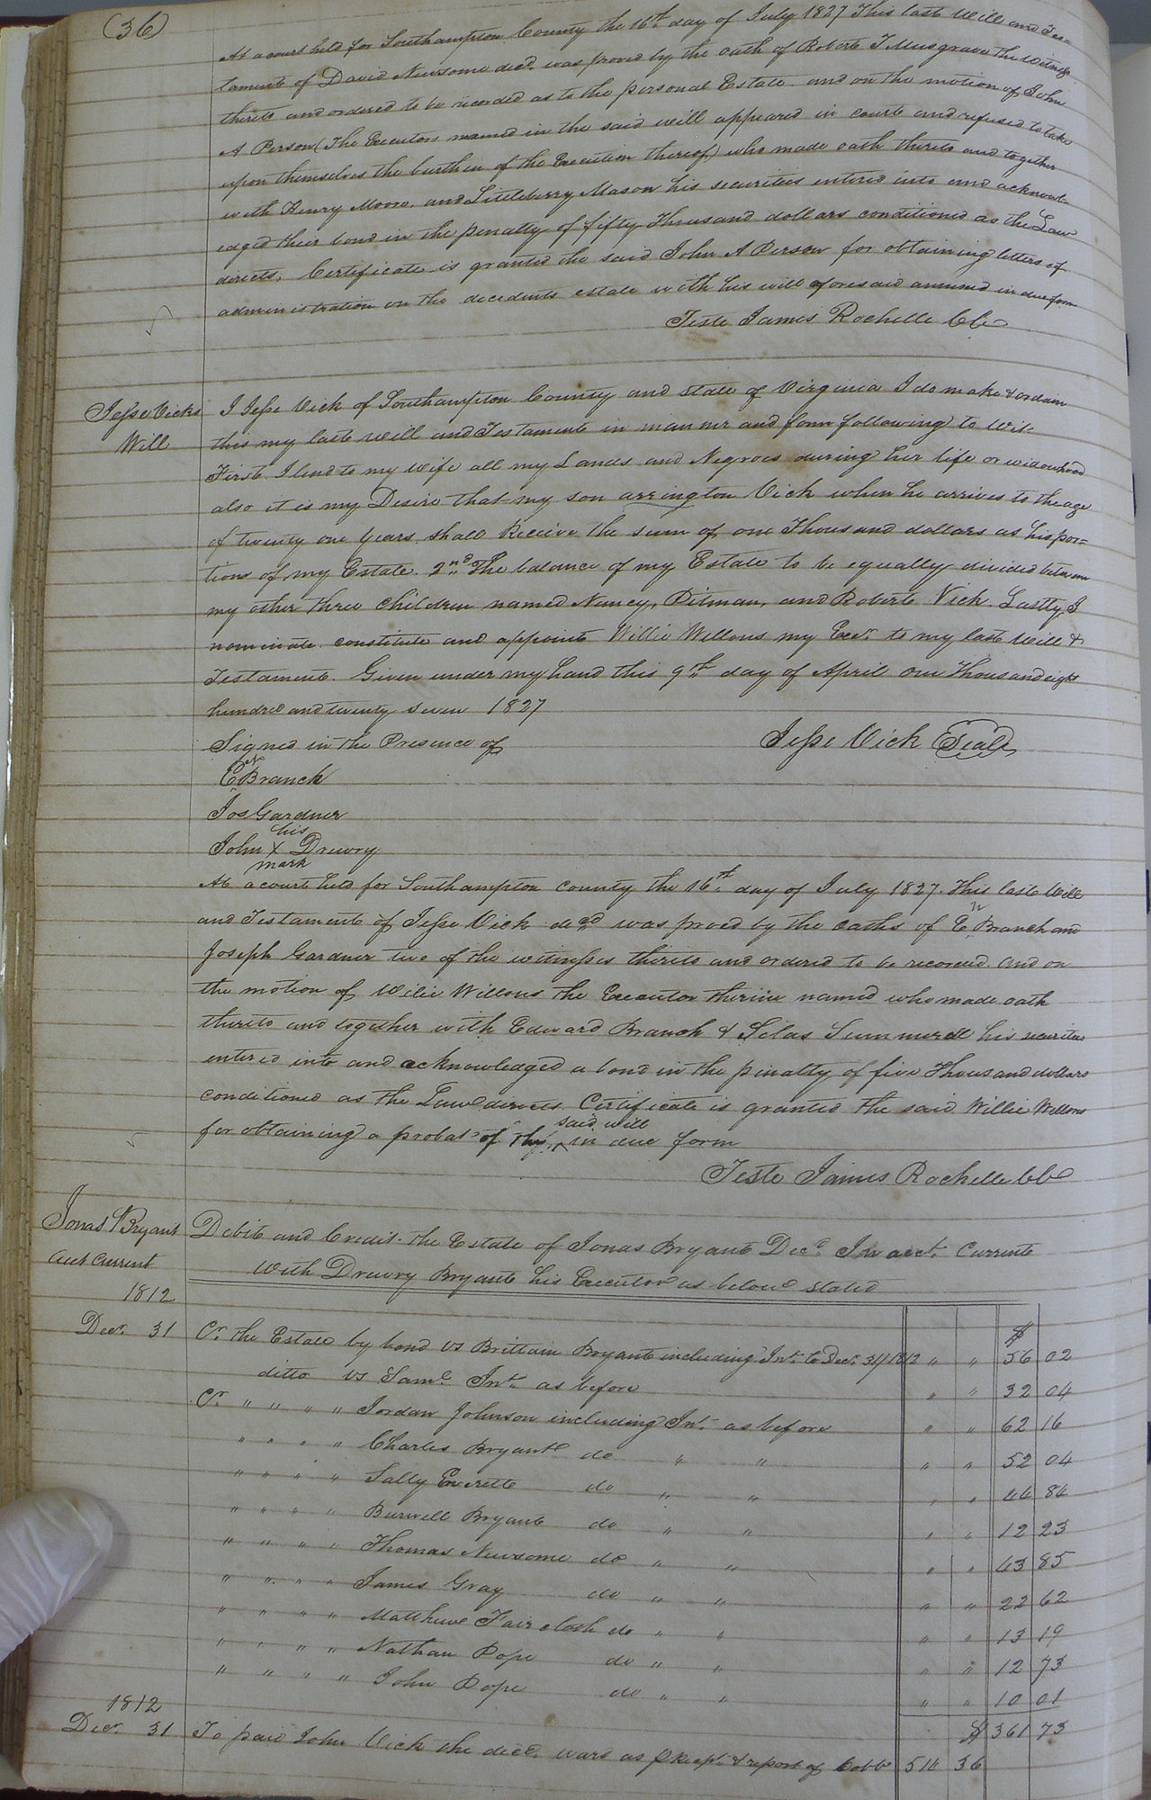 (36)
At a court held for Southampton County the 16th day of July 1827 This last Will and Tes=
tament of David Newsome decd. was proved by the oath of Robert T Musgrave the witness
thereto and ordered to be recorded as to the personal Estate and on the motion of John
A Person (The Executors named in the said will appeared in court and refused to take
upon themselves the burthen of the Execution thereof) who made oath thereto and together
with Henry Moore, and Littleberry Mason his securities entered into and acknowl-
edged their bond in the penalty of fifty Thousand dollars conditioned as the Law
directs, Certificate is granted the said John A Person for obtaining letters of
administration on the decedents estate with his will aforesaid annexed in due form
Teste James Rochelle CC
Jesse Vicks
Will
I Jesse Vick of Southampton County and State of Virginia I do make & ordain
this my last will and Testament in manner and form following to Wit.
First I lend to my wife all my Lands and Negroes during her life or widowhood
also it is my Desire that my son arrington Vick when he arrives to the age
of twenty one years shall Receive the sum of one Thousand dollars as his por=
tion of my Estate. 2nd The balance of my Estate to be equally divided between
my other three children named Nancy, Pitman, and Robert Vick. Lastly I
nominate constitute and appoint Willie Willons my Exer. to my last Will &
Testament. Given under my hand this 9th day of April one Thousand eight
hundred and twenty seven 1827
Signed in the Presence of
Jesse Vick Seal
Branch
Jos Gardner
his
John X Drewry
mark
At a court held for Southampton county the 16th day of July 1827. This last Will
and Testament of Jesse Vick decd was proved by the oaths of Branch and
Joseph Gardner two of the witnesses thereto and ordered to be recorded and on
the motion of Wilie Willons the Executor therein named who made oath
thereto and together with Edward Branch & Silas Summerell his securities
entered into and acknowledged a bond in the penalty of five Thousand dollars
conditioned as the Law directs Certificate is granted the said Willie Willons
said will
for obtaining a probat of the in due form
Teste James Rochelle CC
Jonas Bryant
acct Current
Debit and Credit the Estate of Jonas Bryant Decd. In acct. Current
With Drewry Bryant his Executor as below stated
1812
$
Decr. 31 Cr. the Estate by bond vs Brittain Bryant including Int. to Decr. 31/1812 " " 56 02
ditto vs Same Int. as before " " 32 04
Cr. " " " " Jordan Johnson including Int. as before " " 62 16
" " " " Charles Bryant do " " " " 52 04
" " " " Sally Everette do " " " " 46 84
" " " " Burwell Bryant do " " " " 12 23
" " " " Thomas Newsome do " " " " 43 85
" " " " James Gray do " " " " 22 62
" " " " Matthew Faircloth do " " " " 13 19
" " " " Nathan Pope do " " " " 12 73
" " " " John Pope do " " " " 10 01
$ 361 73
1812
Decr. 31 To paid John Vick the decd. ward as rcept. & report of 514 36